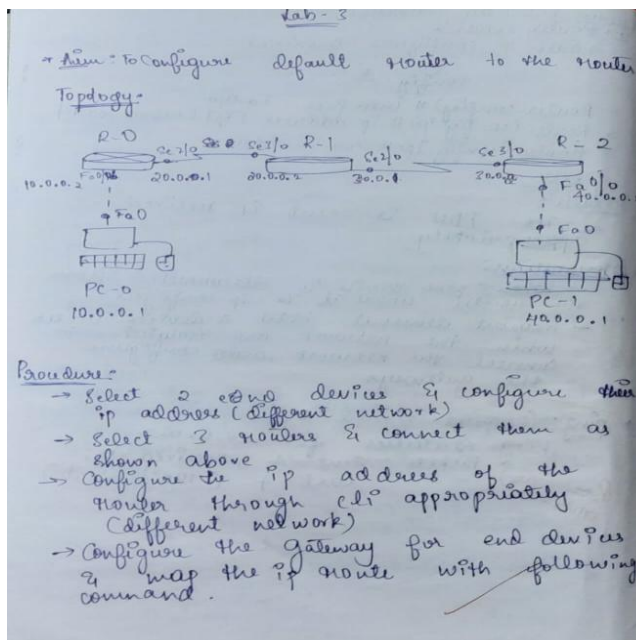 Lab - 3
* Aim: To Configure default router to the router
Topology:-
R-0
Se2/0
Se3/0
R-1
Se2/0
Se3/0
R-2
10.0.0.2
Fa0/0
20.0.0.1
20.0.0.2
30.0.0.1
Fa0/0
40.0.0.
Fa0
Fa0
PC-0
10.0.0.1
PC-1
40.0.0.1
Procedure:-
→ Select 2 end devices & configure their
ip address (different network)
→ Select 3 routers & connect them as
shown above
→ Configure the ip address of the
router through cli appropriately
(different network)
→ Configure the gateway for end devices
& map the ip route with following
command.